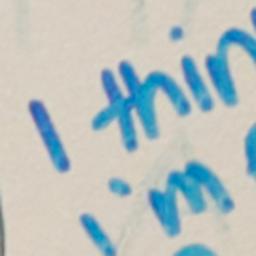 I thin
i'm